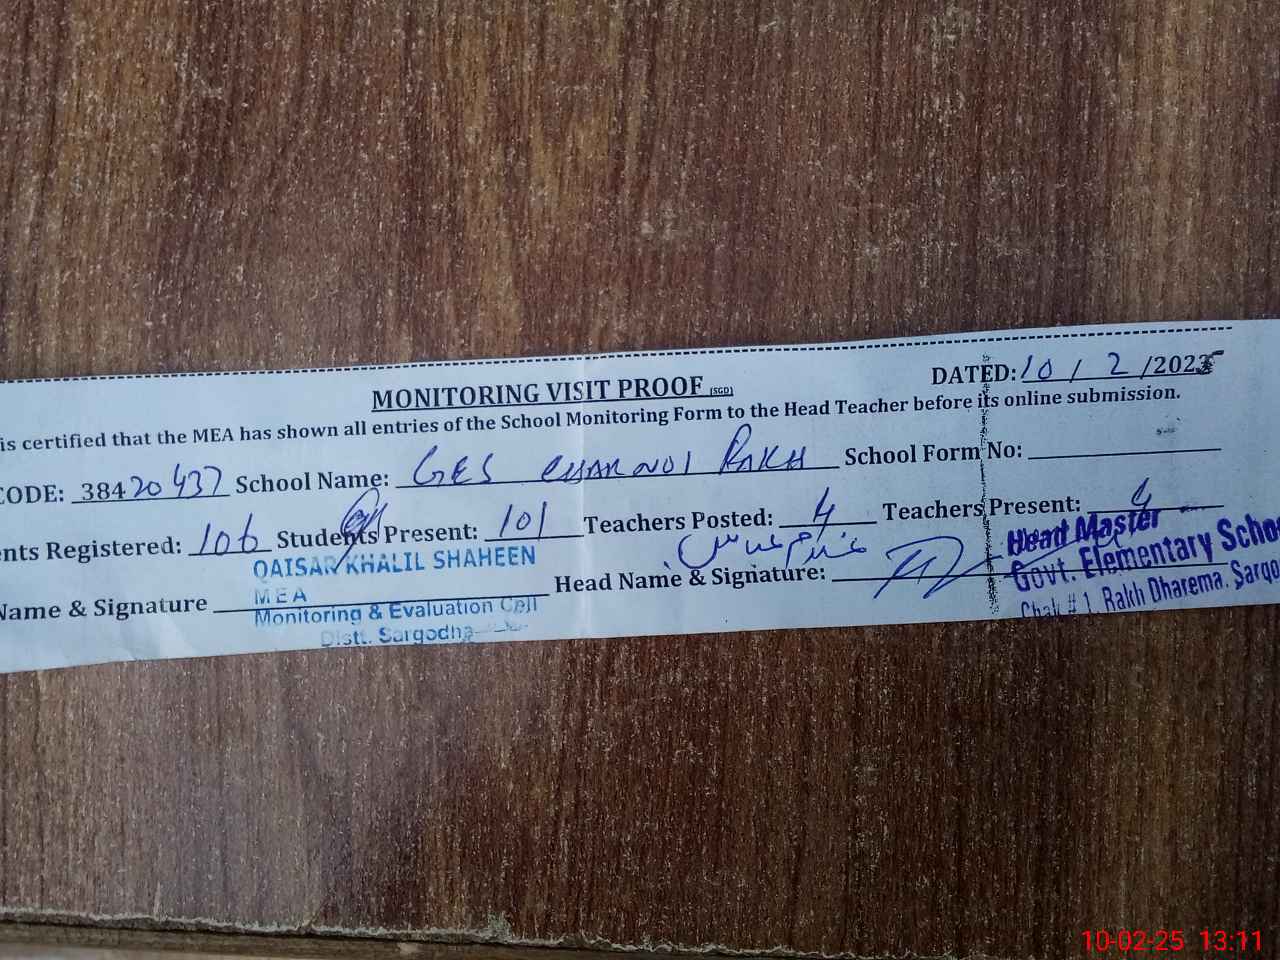 MONITORING VISIT PROOF (SGD)
DATED: 10 / 2 /2025
is certified that the MEA has shown all entries of the School Monitoring Form to the Head Teacher before its online submission.
CODE: 38420437 School Name: GES CHARNOI RAKH School Form No:
ents Registered: 106 Students Present: 101 Teachers Posted: 4 Teachers Present: 4
Name & Signature
QAISAR KHALIL SHAHEEN
MEA
Monitoring & Evaluation Cell
Distt. Sargodha
Head Name & Signature:
Head Master
Govt. Elementary Schoo
Chak # 1, Rakh Dharema, Sargo
10-02-25 13:11